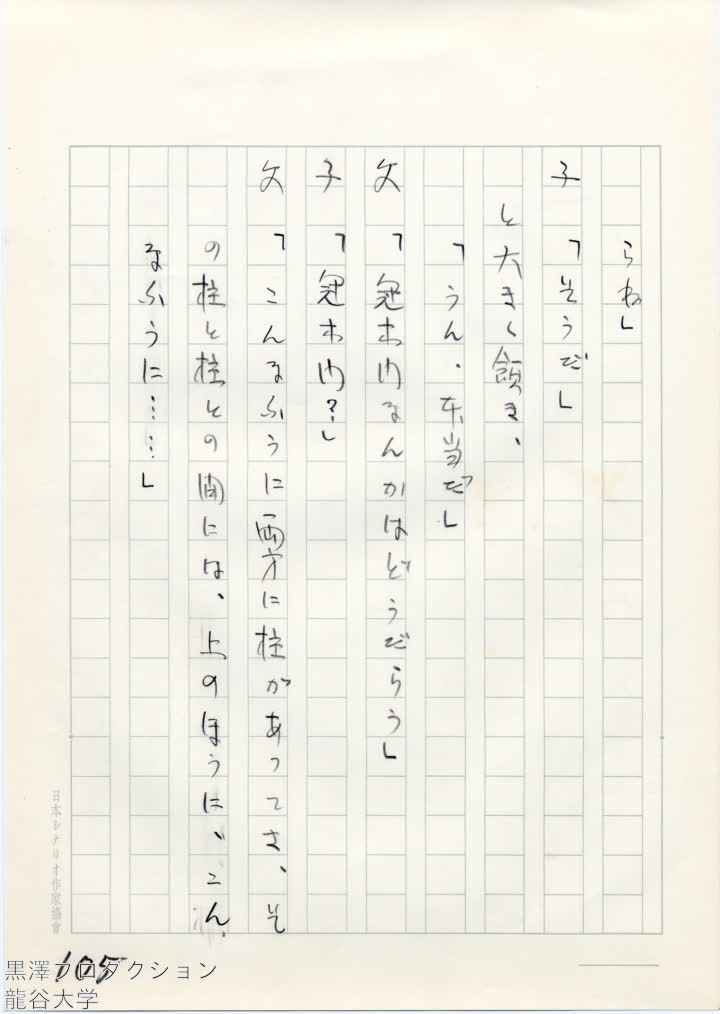 らね」
子「そうだ」
と大きく頷き、
「うん、本当だ」
父「冠木門なんかはどうだらう」
子「冠木門？」
父「こんなふうに両方に柱があってさ、そ
の柱と柱との間には、上のほうに、こん
なふうに……」
日本シナリオ作家協會
105
黒澤プロダクション
龍谷大学